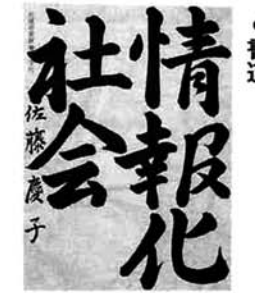 書道
情報化
社会
佐藤慶子